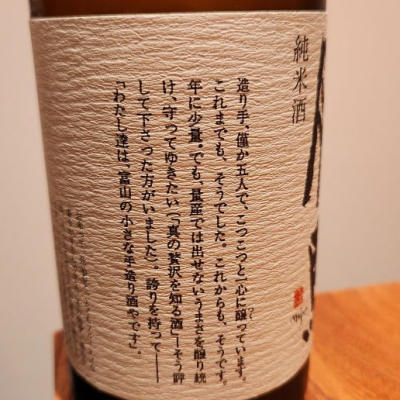 純米酒
造り手、僅か五人で、こつこつと心に醸っています。
これまでも、そうでした。これからも、そうです。
年に少量。でも、量産では出せないうまさを醸り続
け、守ってゆきたい(「真の贅沢を知る酒」―そう評
して下さった方がいました)。誇りを持って――
「わたし達は、富山の小さな手造り酒やです」。